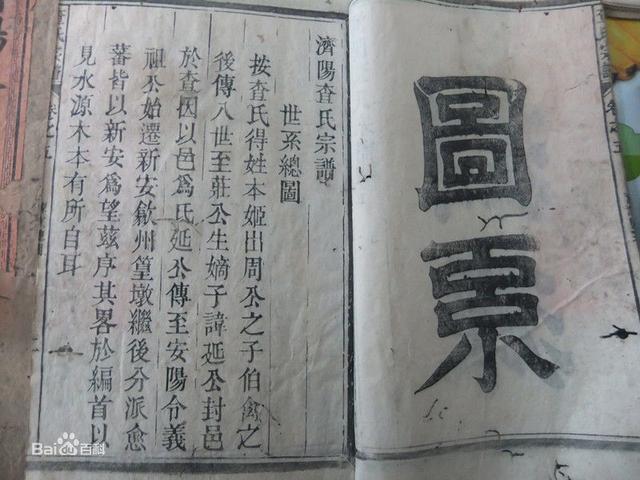 圖系
濟陽查氏宗譜
世系總圖
按查氏得姓本姬出周公之子伯禽之
後傳八世至莊公生嫡子諱延公封邑
於查因以邑爲氏延公傳至安陽令義
祖公始遷新安歙州篁墩繼後分派愈
蕃皆以新安爲望茲序其畧於編首以
見水源木本有所自耳
卷之五
Bai百科